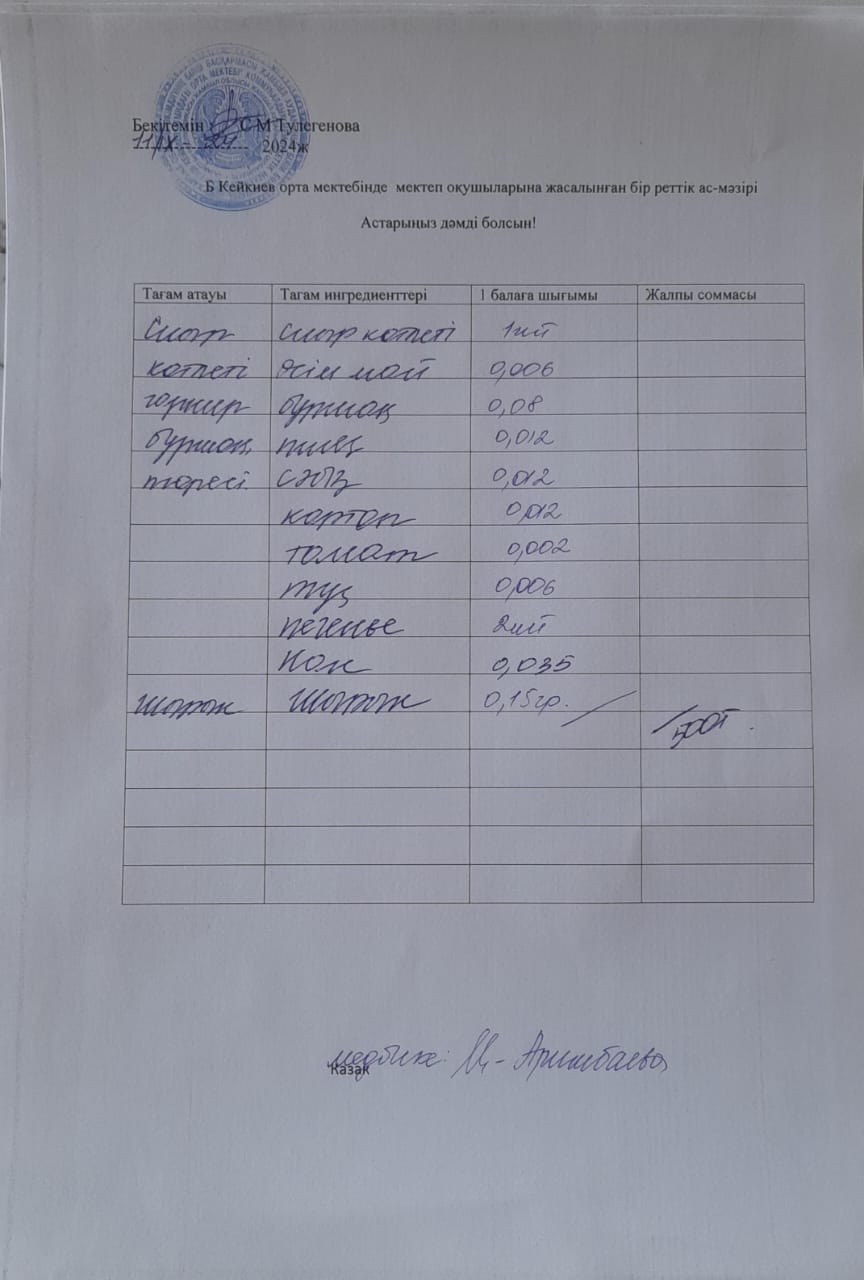 Бекітемін С М Тулегенова
11/IX - 24 2024ж
Б Кейкиев орта мектебінде мектеп оқушыларына жасалынған бір реттік ас-мәзірі
Астарыңыз дәмді болсын!
Тағам атауы Тағам ингредиенттері 1 балаға шығымы Жалпы соммасы
Сиыр сиыр котлеті 1шт
котлеті өсім май 0,006
гарнир бұршақ 0,08
бұршақ пияз 0,012
пюресі сәбіз 0,012
картоп 0,012
томат 0,002
тұз 0,006
печенье 2шт
Нан 0,035
Шырын Шырын 0,15гр.
500т.
медбике:
Казак